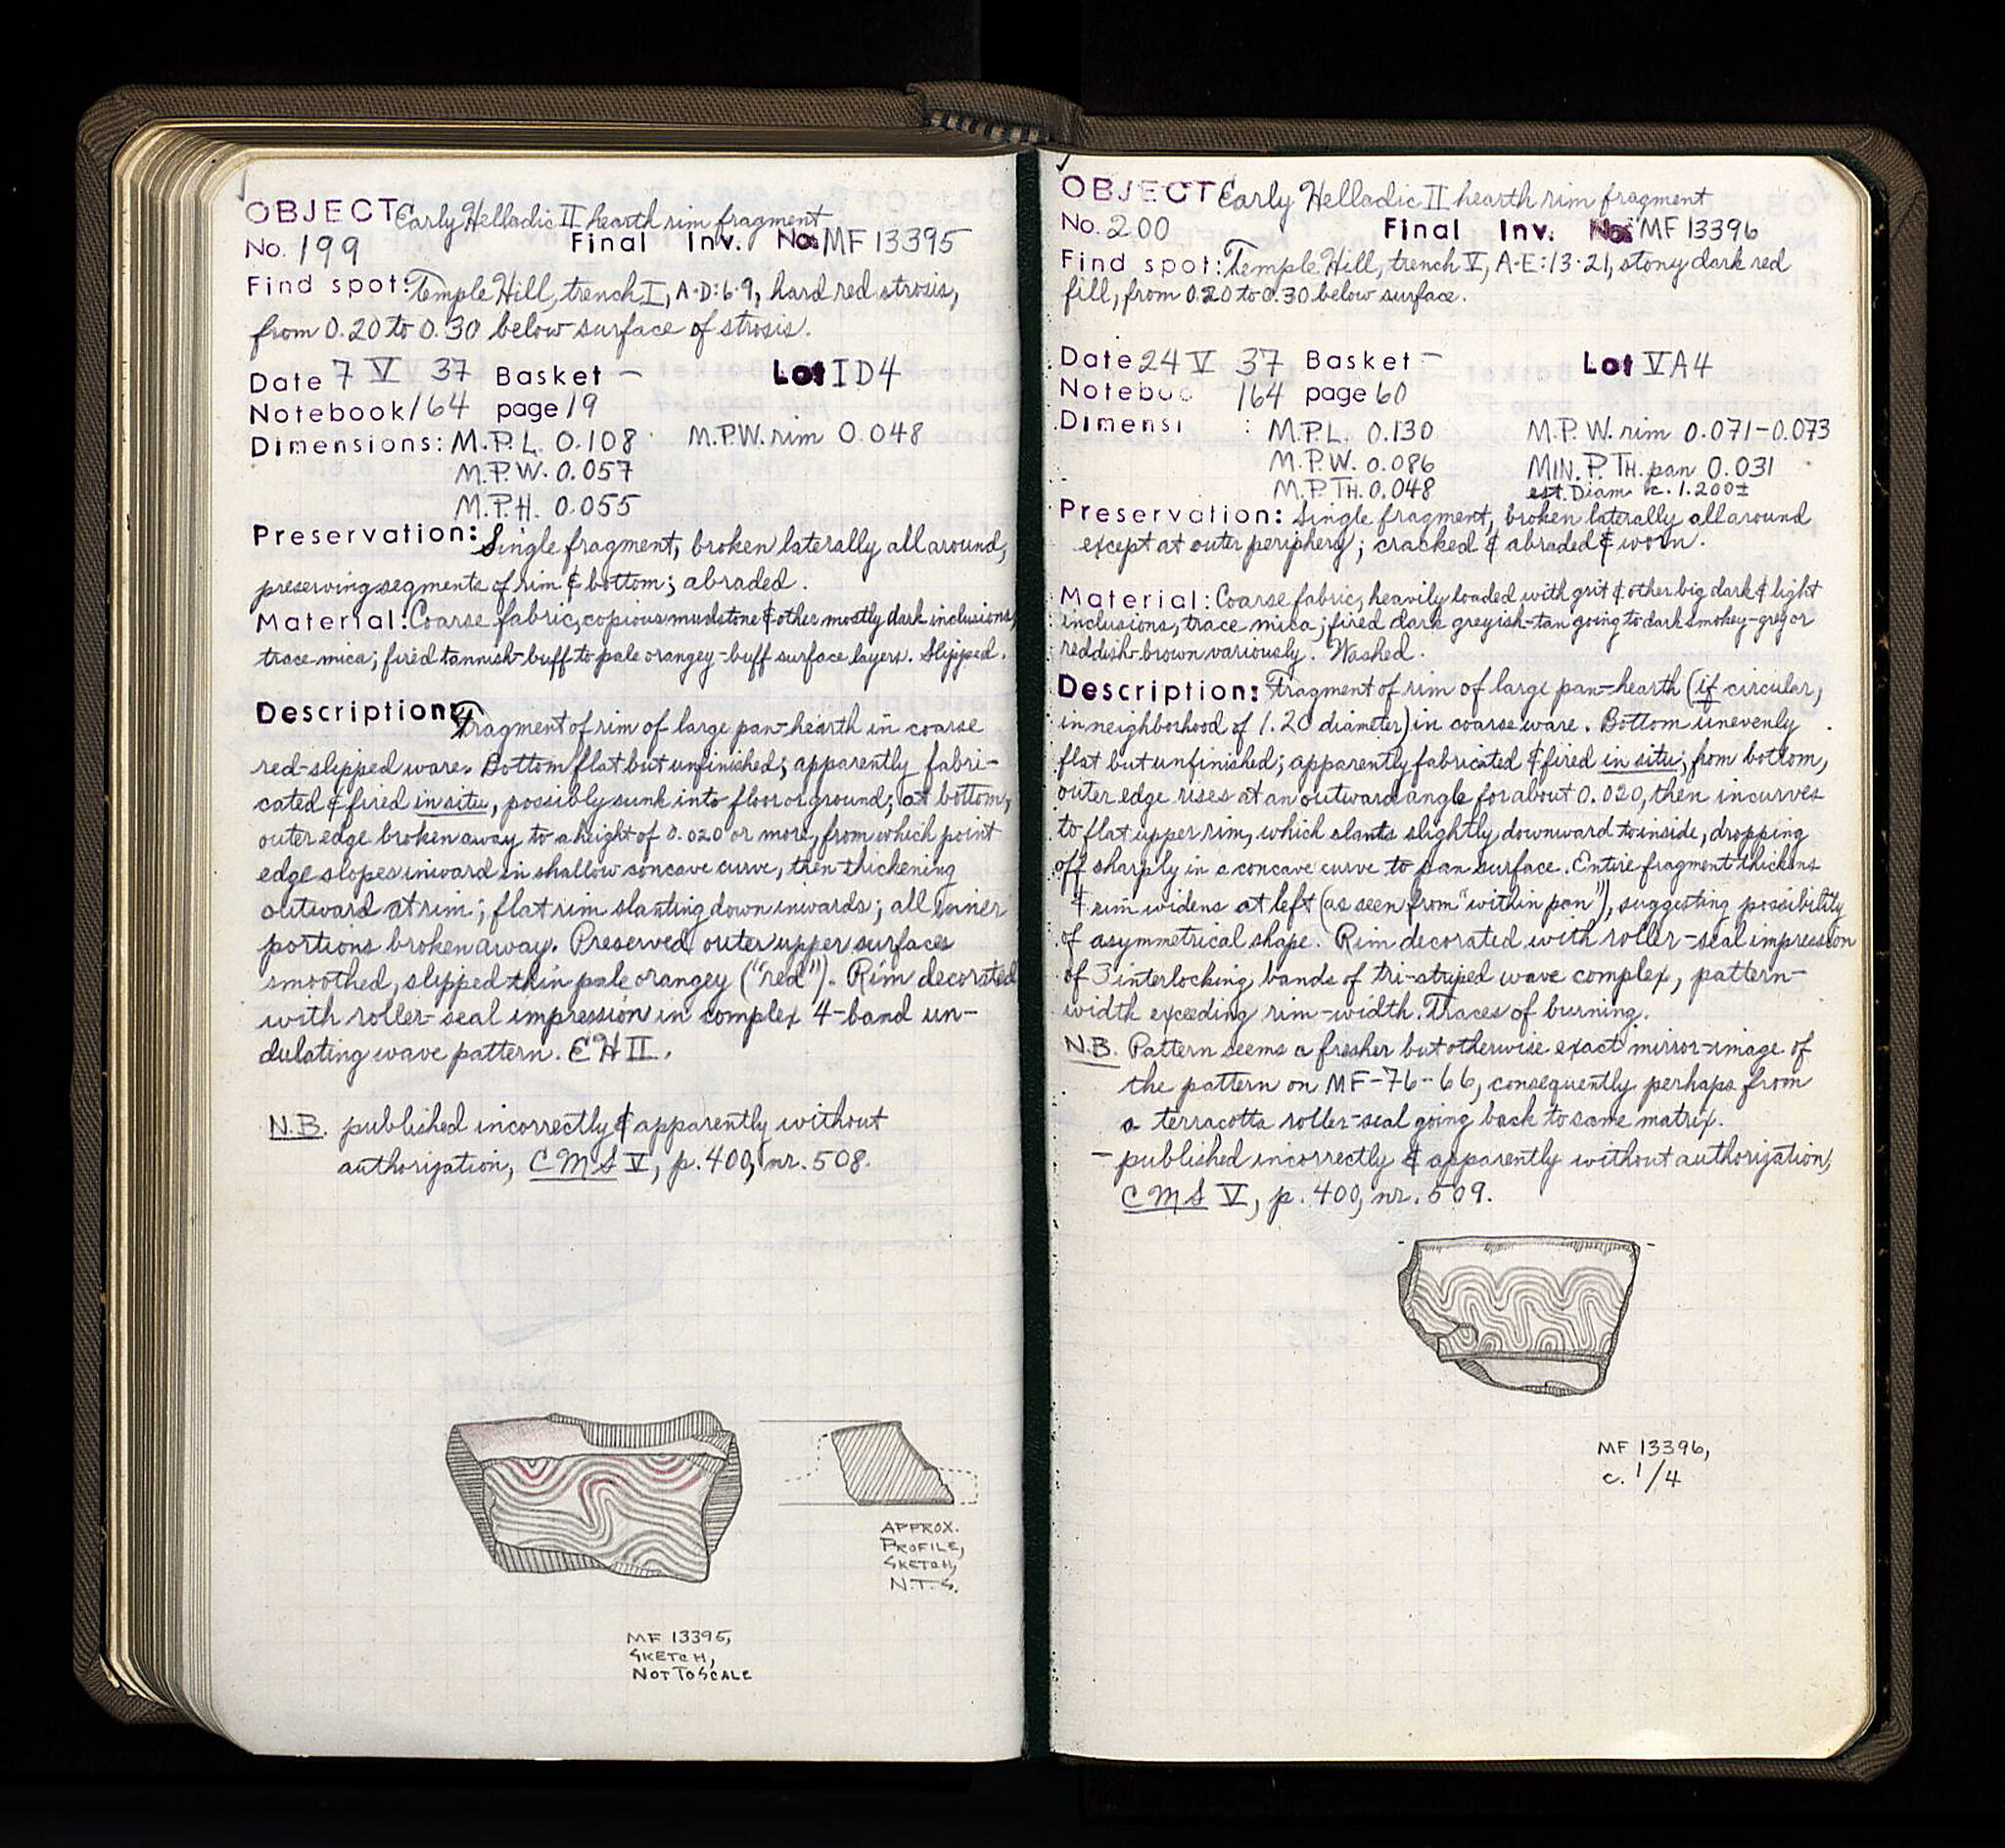 OBJECT Early Helladic II hearth rim fragment
No. 199 Final Inv. No. MF 13395
Find spot: Temple Hill, trench I, A-D:6-9, hard red strosis,
from 0.20 to 0.30 below surface of strosis.
Date 7 V 37 Basket – Lot ID4
Notebook 164 page 19
Dimensions: M.P.L. 0.108 M.P.W. rim 0.048
M.P.W. 0.057
M.P.H. 0.055
Preservation: Single fragment, broken laterally all around,
preserving segments of rim & bottom; abraded.
Material: Coarse fabric, copious mudstone & other mostly dark inclusions,
trace mica; fired tannish-buff to pale orangey-buff surface layers. Slipped.
Description: Fragment of rim of large pan-hearth in coarse
red-slipped ware. Bottom flat but unfinished; apparently fabri-
cated & fired in situ, possibly sunk into floor or ground; at bottom,
outer edge broken away to a height of 0.020 or more, from which point
edge slopes inward in shallow concave curve, then thickening
outward at rim; flat rim slanting down inwards; all inner
portions broken away. Preserved outer upper surfaces
smoothed, slipped thin pale orangey ("red"). Rim decorated
with roller-seal impression in complex 4-band un-
dulating wave pattern. EH II.
N.B. published incorrectly & apparently without
authorization, CMS V, p. 400, nr. 508.
APPROX.
PROFILE,
SKETCH,
N.T.S.
MF 13395,
SKETCH,
NOT TO SCALE
OBJECT Early Helladic II hearth rim fragment
No. 200 Final Inv. No. MF 13396
Find spot: Temple Hill, trench V, A-E:13-21, stony dark red
fill, from 0.20 to 0.30 below surface.
Date 24 V 37 Basket – Lot VA4
Noteboo 164 page 60
Dimensi : M.P.L. 0.130 M.P.W. rim 0.071-0.073
M.P.W. 0.086 MIN. P. TH. pan 0.031
M.P.TH. 0.048 est. Diam. c. 1.200±
Preservation: Single fragment, broken laterally all around
except at outer periphery; cracked & abraded & worn.
Material: Coarse fabric, heavily loaded with grit & other big dark & light
inclusions, trace mica; fired dark greyish-tan going to dark smokey-grey or
reddish-brown variously. Washed.
Description: Fragment of rim of large pan-hearth (if circular,
in neighborhood of 1.20 diameter) in coarse ware. Bottom unevenly
flat but unfinished; apparently fabricated & fired in situ; from bottom,
outer edge rises at an outward angle for about 0.020, then incurves
to flat upper rim, which slants slightly downward to inside, dropping
off sharply in a concave curve to pan surface. Entire fragment thickens
& rim widens at left (as seen from "within pan"), suggesting possibility
of asymmetrical shape. Rim decorated with roller-seal impression
of 3 interlocking bands of tri-striped wave complex, pattern-
width exceeding rim-width. Traces of burning.
N.B. Pattern seems a fresher but otherwise exact mirror-image of
the pattern on MF-76-66, consequently perhaps from
a terracotta roller-seal going back to same matrix.
– published incorrectly & apparently without authorization,
CMS V, p. 400, nr. 509.
MF 13396,
c. 1/4